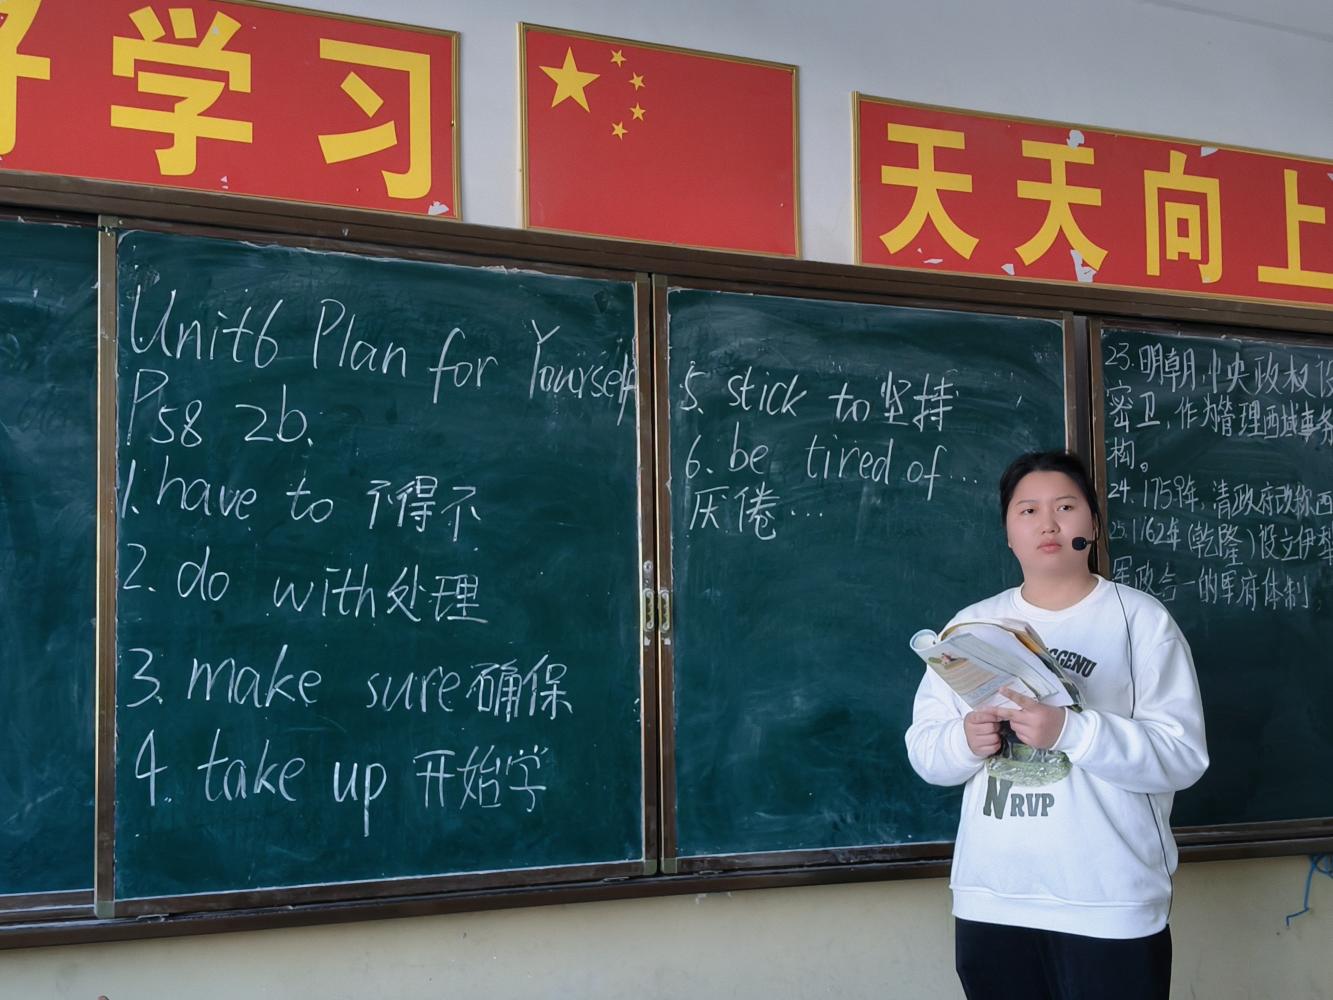 学习
天天向上
Unit6 Plan for Yourself
P58 2b.
1. have to 不得不
2. do with 处理
3. make sure 确保
4. take up 开始学
5. stick to 坚持
6. be tired of...
厌倦...
23. 明朝,中央政权设
密卫,作为管理西域事务
构。
24. 1759年,清政府改称西
25. 1162年(乾隆)设立伊犁
军政合一的军府体制,
GGENU
NRVP